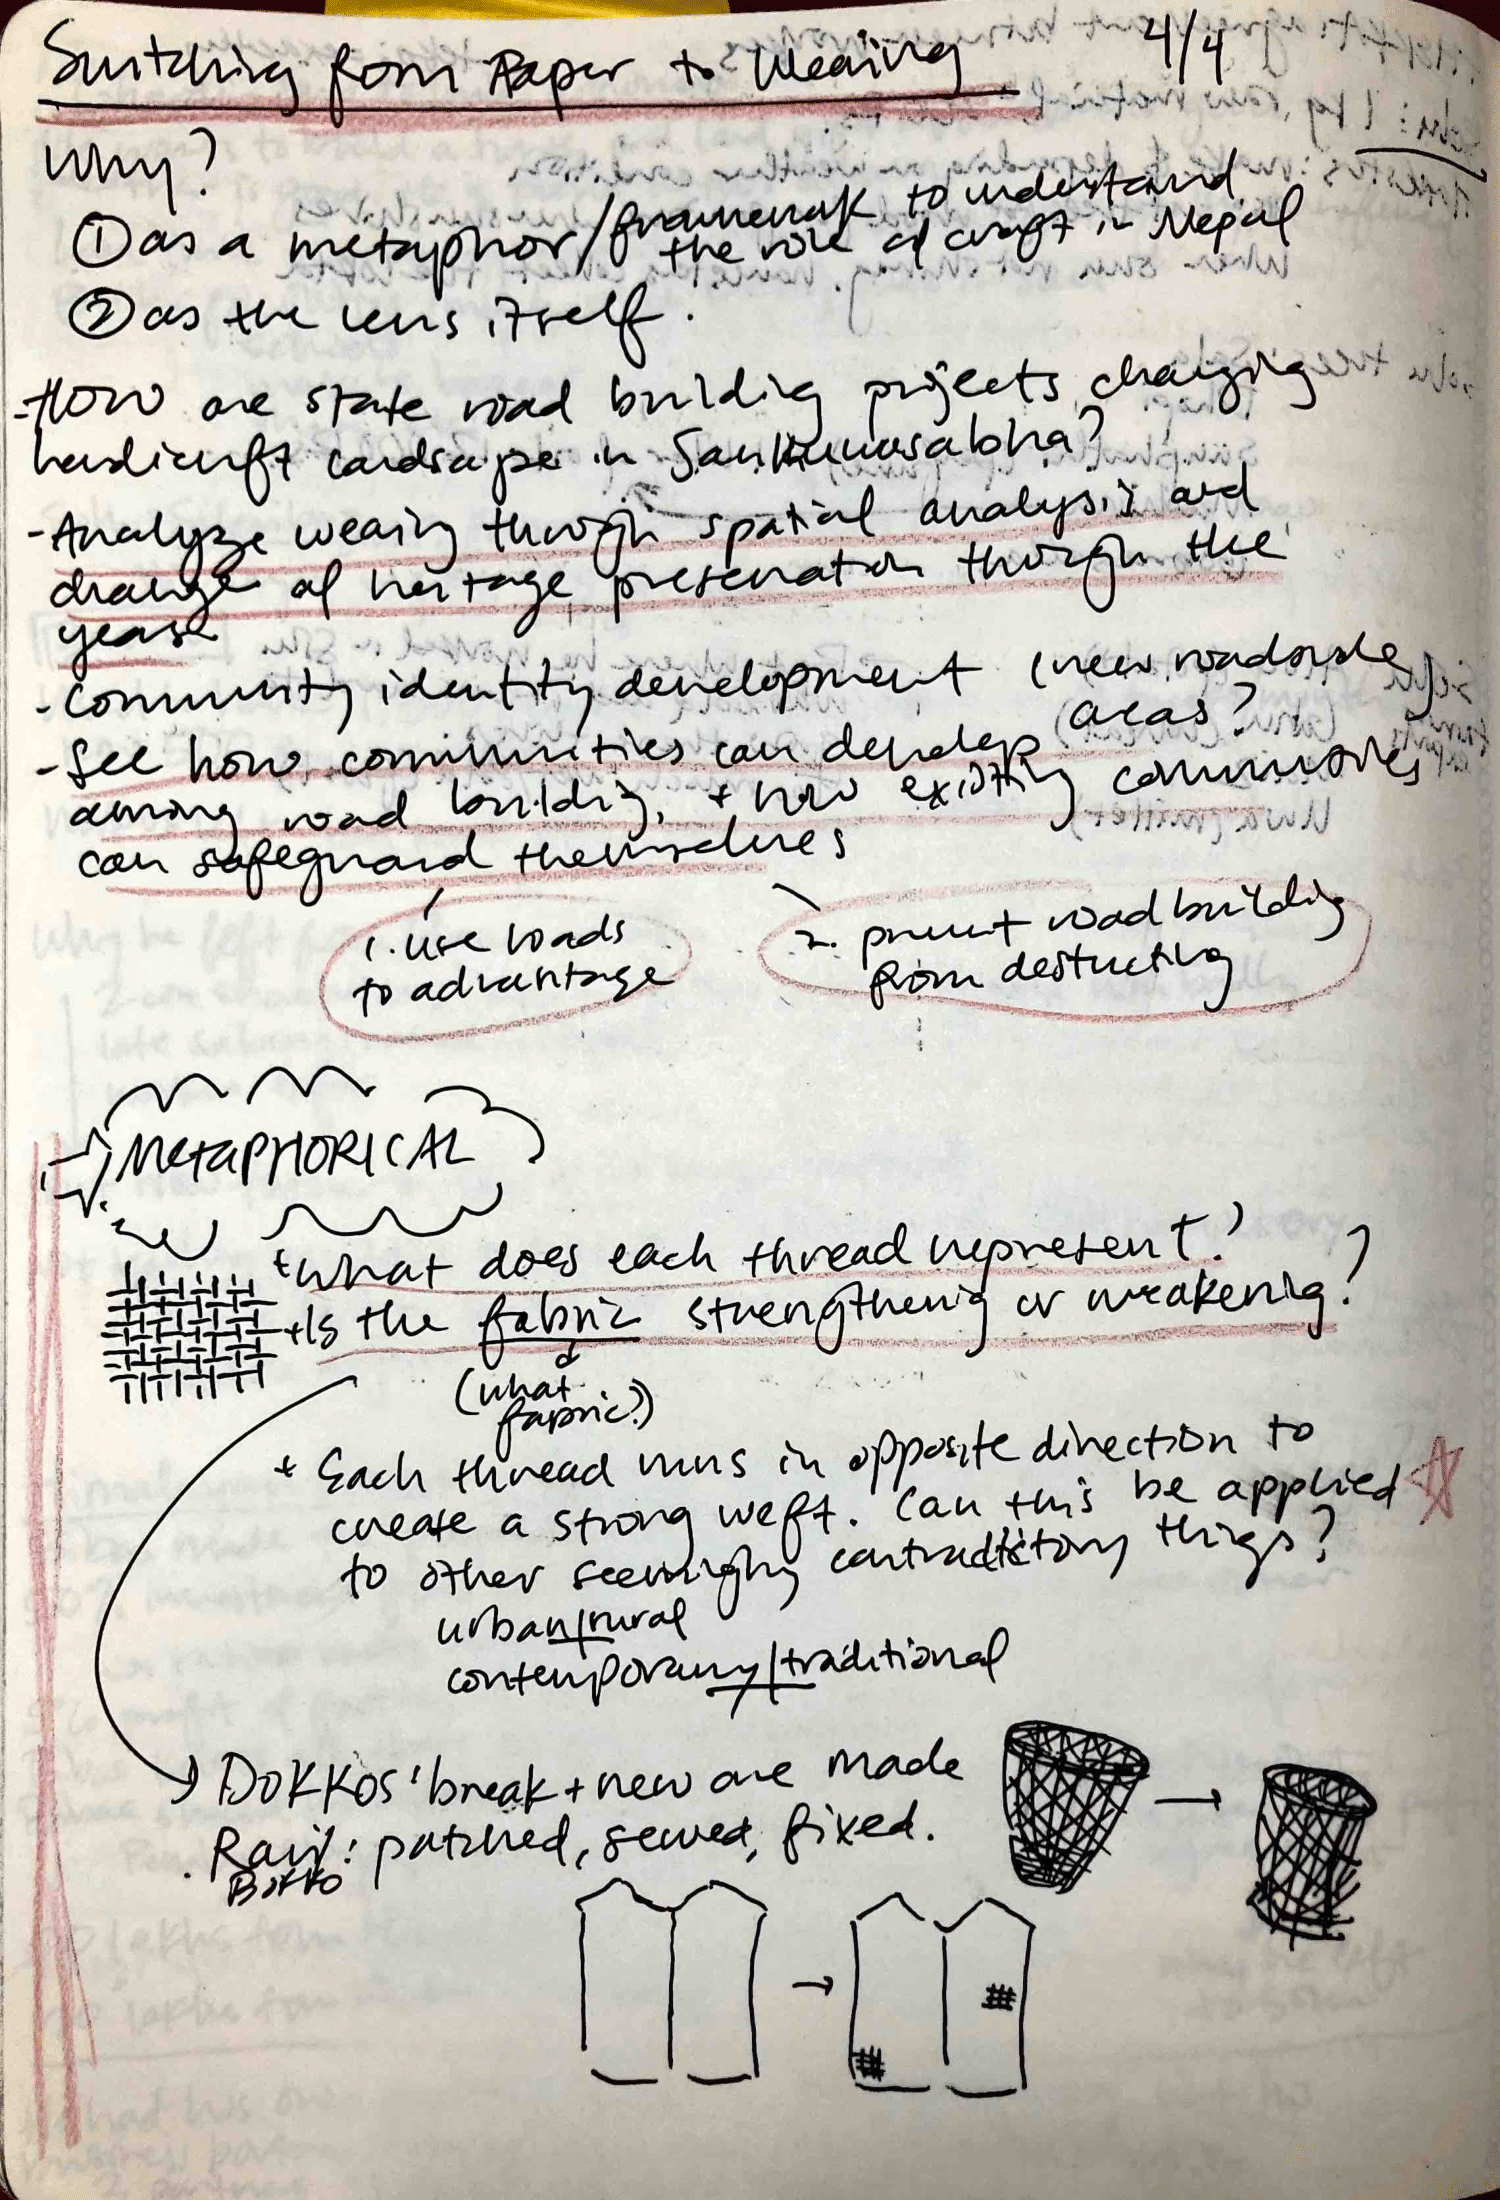 Switching from Paper to Weaving 4/4
Why?
① as a metaphor/framework to understand
the role of craft in Nepal
② as the lens itself.
- How are state road building projects changing
handicraft landscapes in Sankhuwasabha?
- Analyze weaving through spatial analysis and
change of heritage preservation through the
years
- Community identity development (new roadside
areas?)
- See how communities can develop
among road building, + how existing communities
can safeguard themselves
1. use roads
to advantage
2. prevent road building
from destructing
METAPHORICAL
+ What does each thread represent?
+ Is the fabric strengthening or weakening?
(what
fabric?)
+ Each thread runs in opposite direction to
create a strong weft. Can this be applied
to other seemingly contradictory things?
urban/rural
contemporary/traditional
DOKKOS: break + new are made
: patched, sewed, fixed.